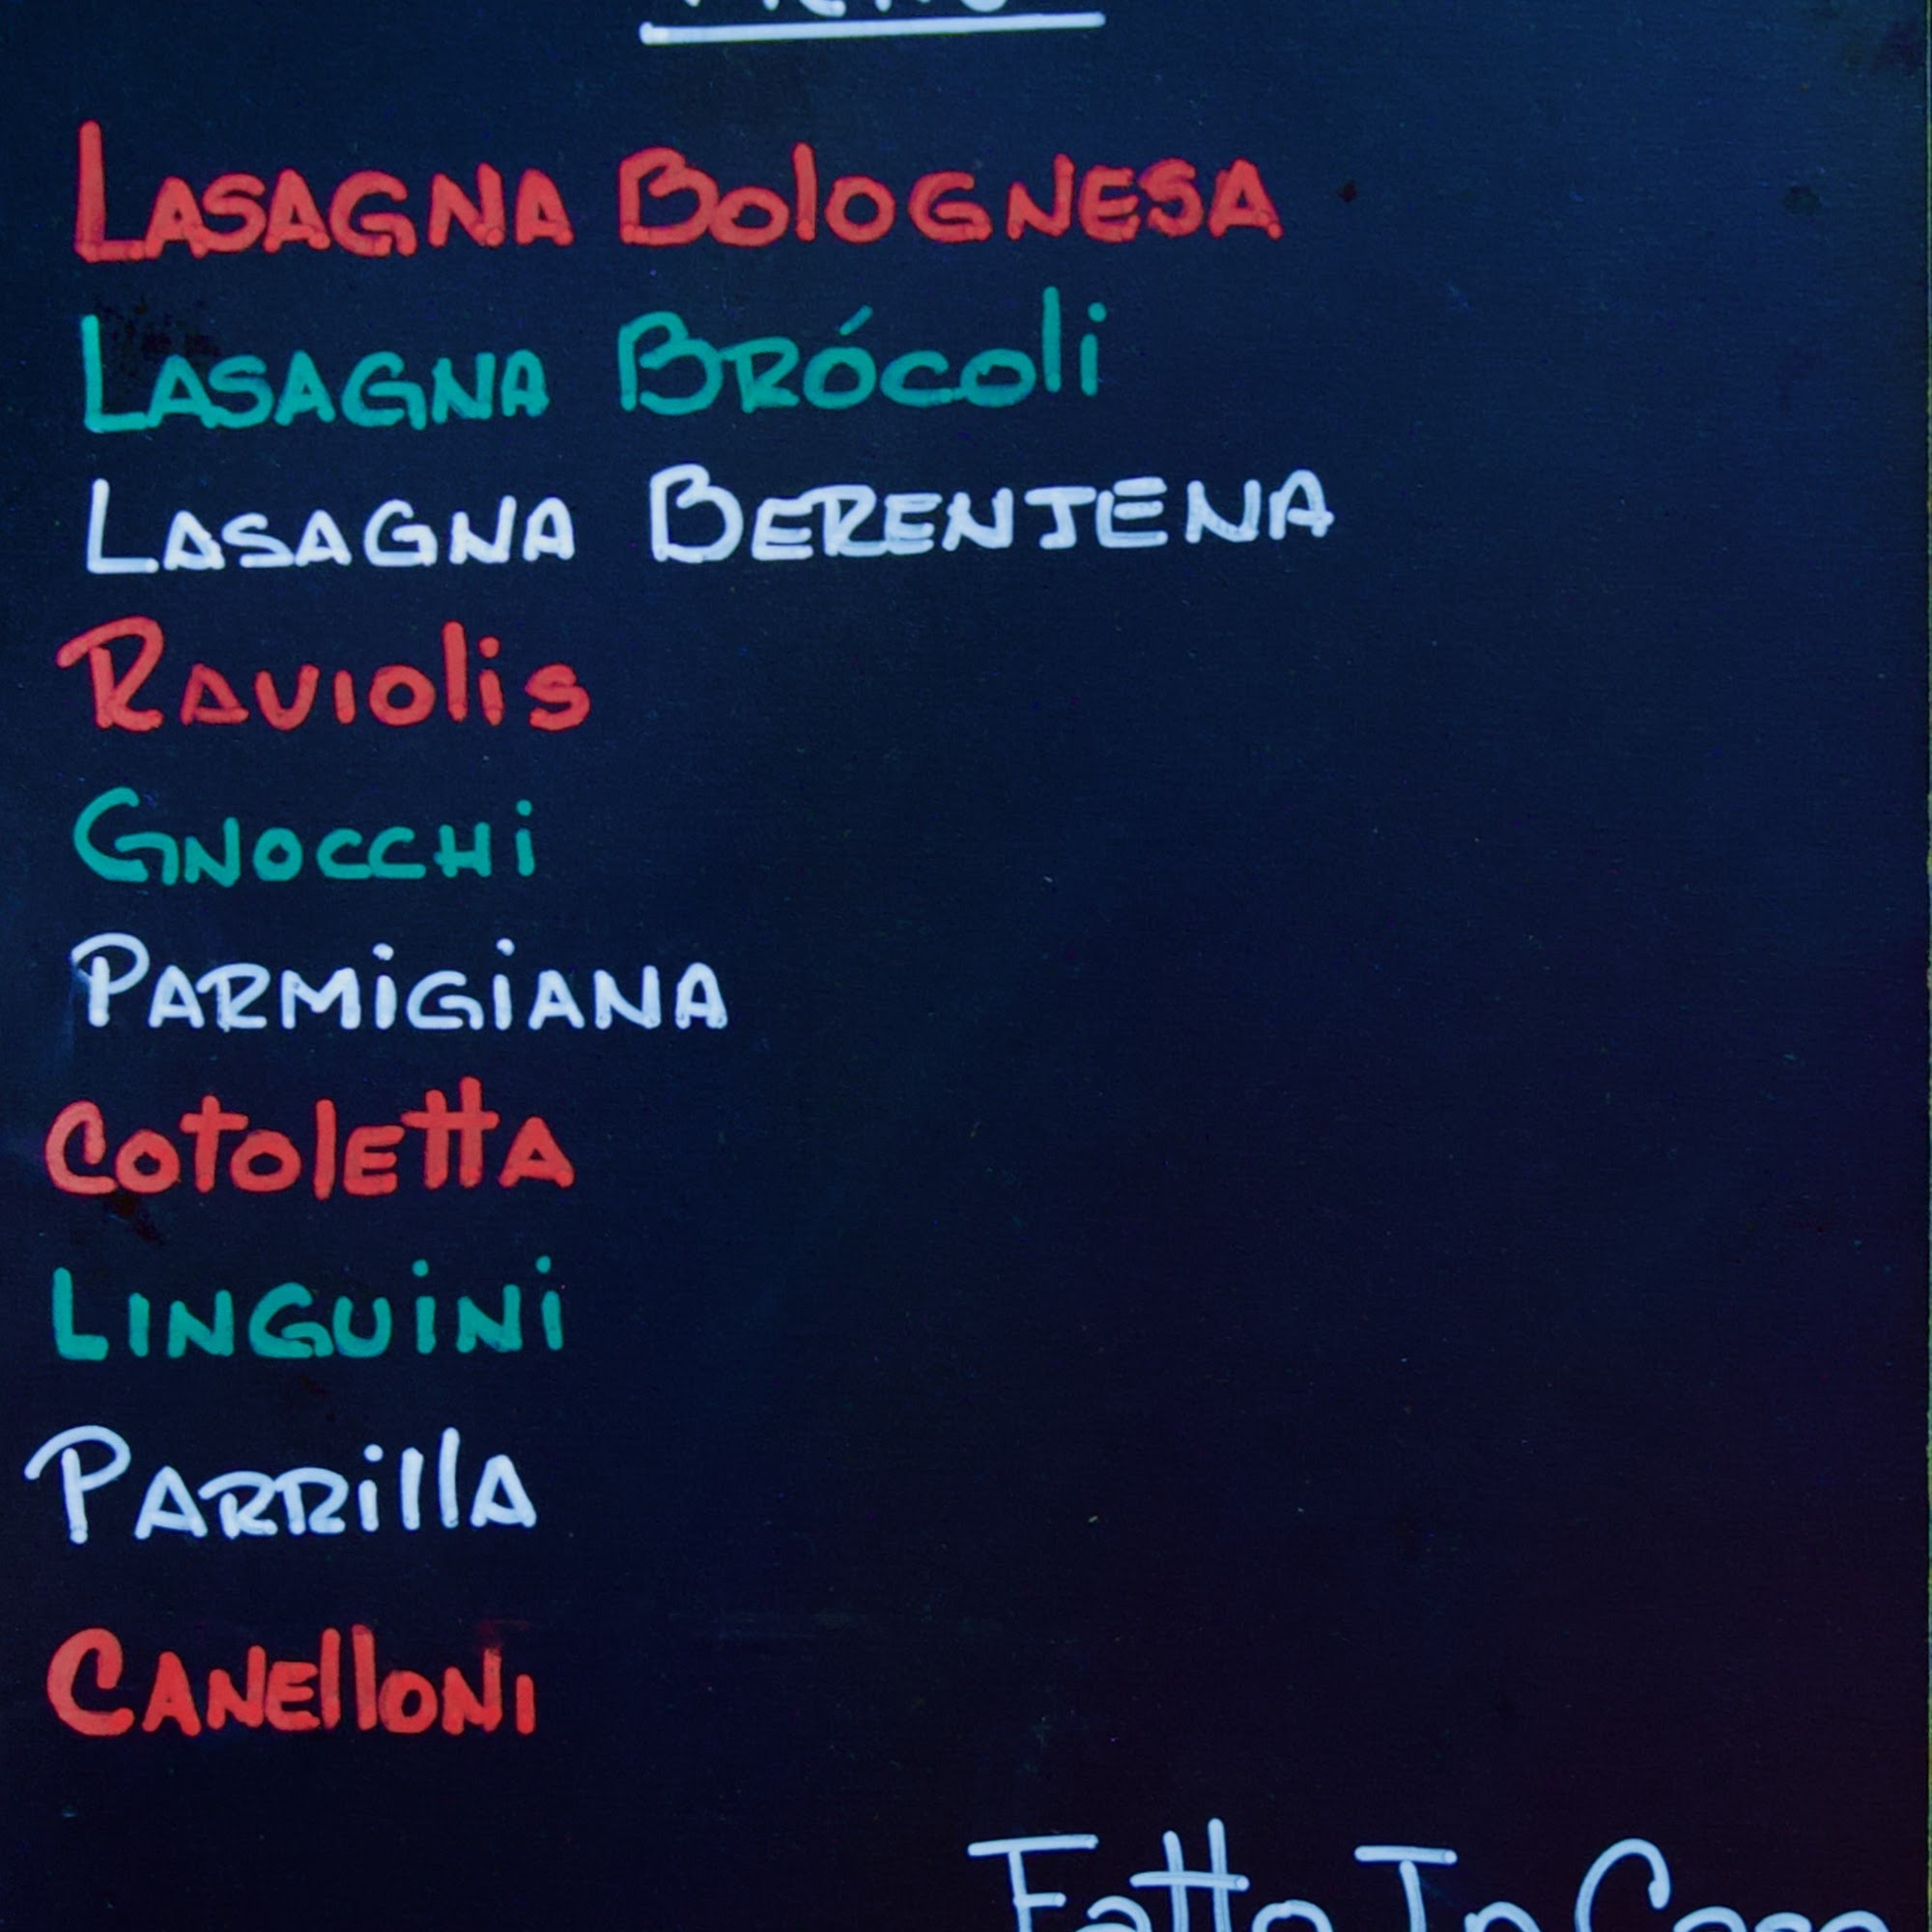 Lasagna Bolognesa
Lasagna Brócoli
Lasagna Berenjena
Raviolis
Gnocchi
Parmigiana
Cotoletta
Linguini
Parrilla
Canelloni
Fatto In Casa